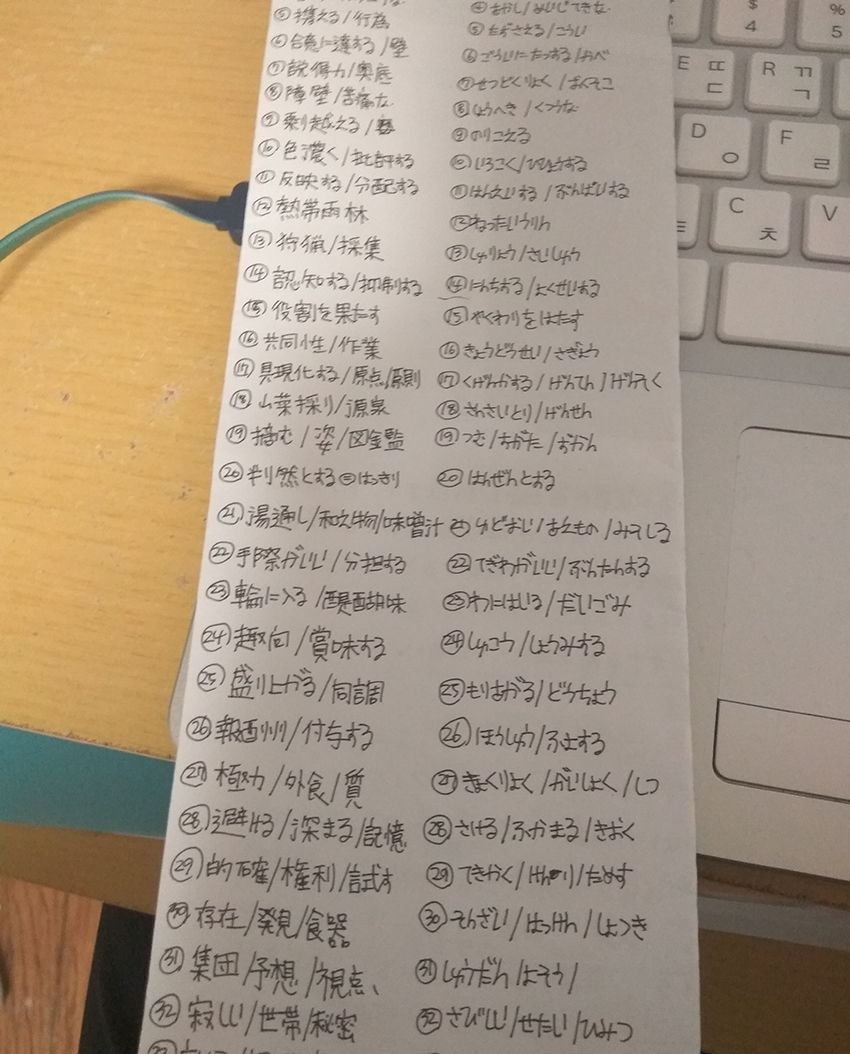 ⑤携える/行為 ⑤たずさえる/こうい
⑥合意に達する/壁 ⑥ごういにたっする/かべ
⑦説得力/奥底 ⑦せっとくりょく/おくそこ
⑧障壁/苦痛な ⑧しょうへき/くつうな
⑨乗り越える/ ⑨のりこえる
⑩色濃く/批評する ⑩いろこく/ひひょうする
⑪反映する/分配する ⑪はんえいする/ぶんぱいする
⑫熱帯雨林 ⑫ねったいうりん
⑬狩猟/採集 ⑬しゅりょう/さいしゅう
⑭認知する/抑制する ⑭にんちする/よくせいする
⑮役割を果たす ⑮やくわりをはたす
⑯共同性/作業 ⑯きょうどうせい/さぎょう
⑰具現化する/原点/原則 ⑰くげんかする/げんてん/げんそく
⑱山菜採り/源泉 ⑱さんさいとり/げんせん
⑲摘む/姿/図鑑 ⑲つむ/すがた/ずかん
⑳判然とする=はっきり ⑳はんぜんとする
㉑湯通し/和え物/味噌汁 ㉑ゆどおし/あえもの/みそしる
㉒手際がいい/分担する ㉒てぎわがいい/ぶんたんする
㉓輪に入る/醍醐味 ㉓わにはいる/だいごみ
㉔趣向/賞味する ㉔しゅこう/しょうみする
㉕盛り上がる/同調 ㉕もりあがる/どうちょう
㉖報酬/付与する ㉖ほうしゅう/ふよする
㉗極力/外食/質 ㉗きょくりょく/がいしょく/しつ
㉘避ける/深まる/記憶 ㉘さける/ふかまる/きおく
㉙的確/権利/試す ㉙てきかく/けんり/ためす
㉚存在/発見/食器 ㉚そんざい/はっけん/しょっき
㉛集団/予想/視点、 ㉛しゅうだん/よそう/
㉜寂しい/世帯/秘密 ㉜さびしい/せたい/ひみつ
$ 4 % 5
E ㄸ ㄷ R ㄲ ㄱ
D ㅇ F ㄹ
C ㅊ V